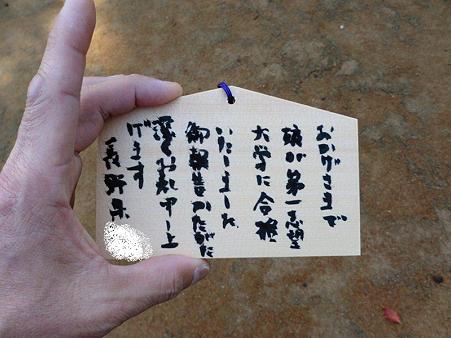 おかげさまで
娘が第一志望
大学に合格
いたしました。
御報告かたがた
深くお礼申し上
げます
長野県